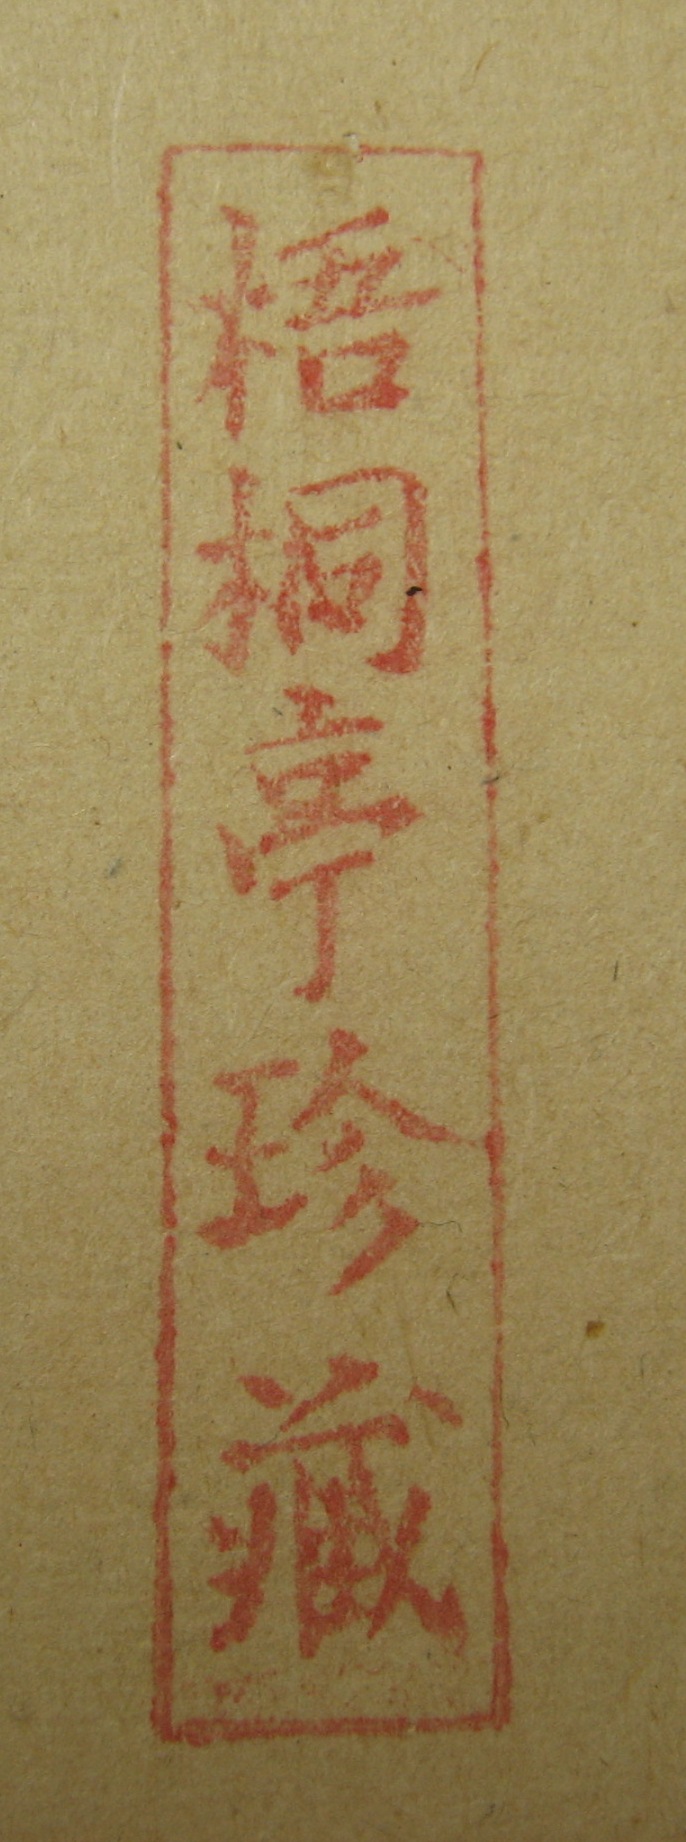 梧桐亭珍藏